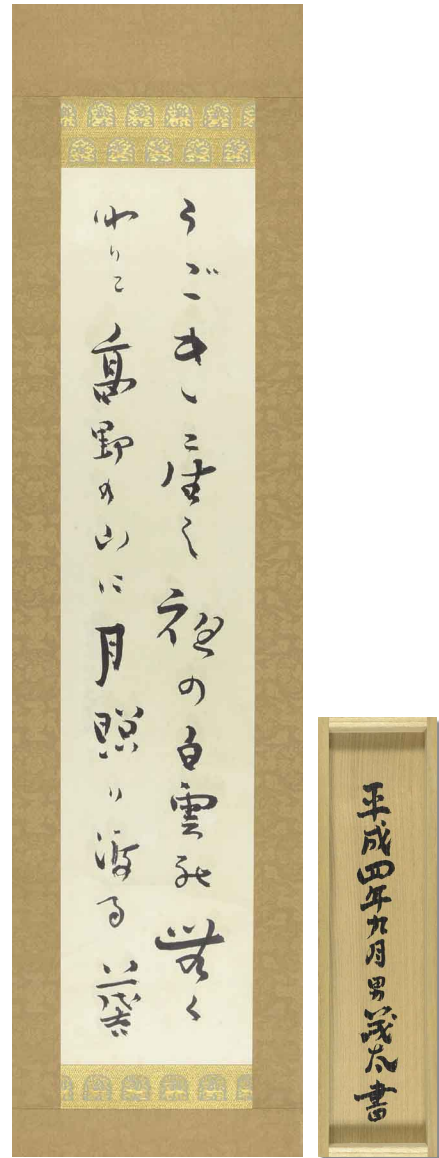 うごきゐし夜の白雲の無く
なりて高野の山に月照り渡る 茂吉
平成四年九月男茂太書